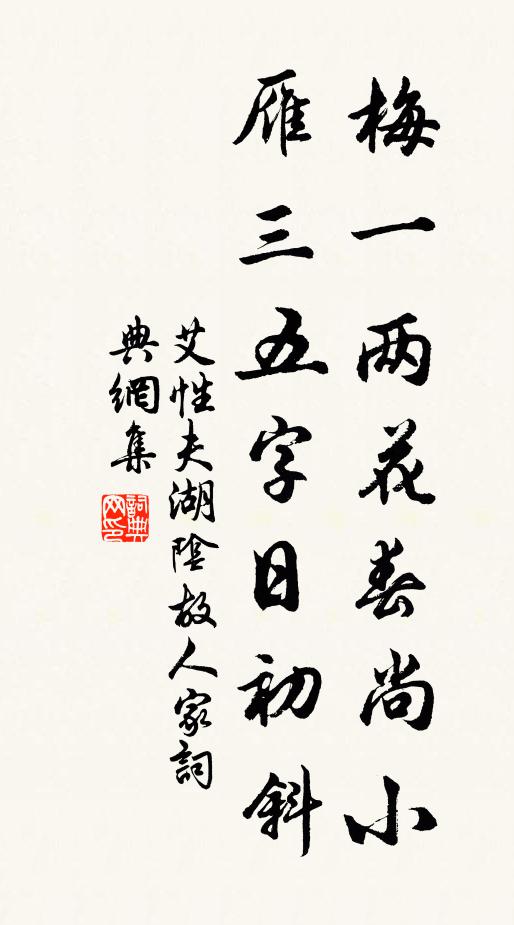 梅一两花春尚小
雁三五字日初斜
艾性夫湖陰故人家詞
典網集
詞典
网印